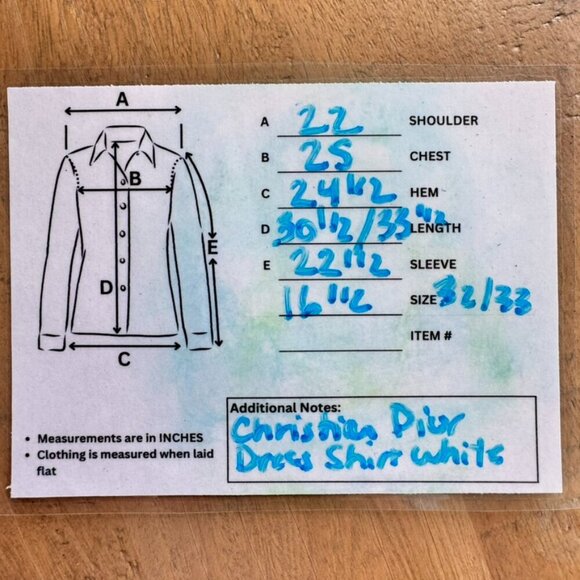 A
A 22 SHOULDER
B 25 CHEST
C 24 1/2 HEM
D 30 1/2 / 33 1/2 LENGTH
E 22 1/2 SLEEVE
16 1/2 SIZE 32/33
ITEM #
B
E
D
C
• Measurements are in INCHES
• Clothing is measured when laid
flat
Additional Notes:
Christian Dior
Dress Shirt White